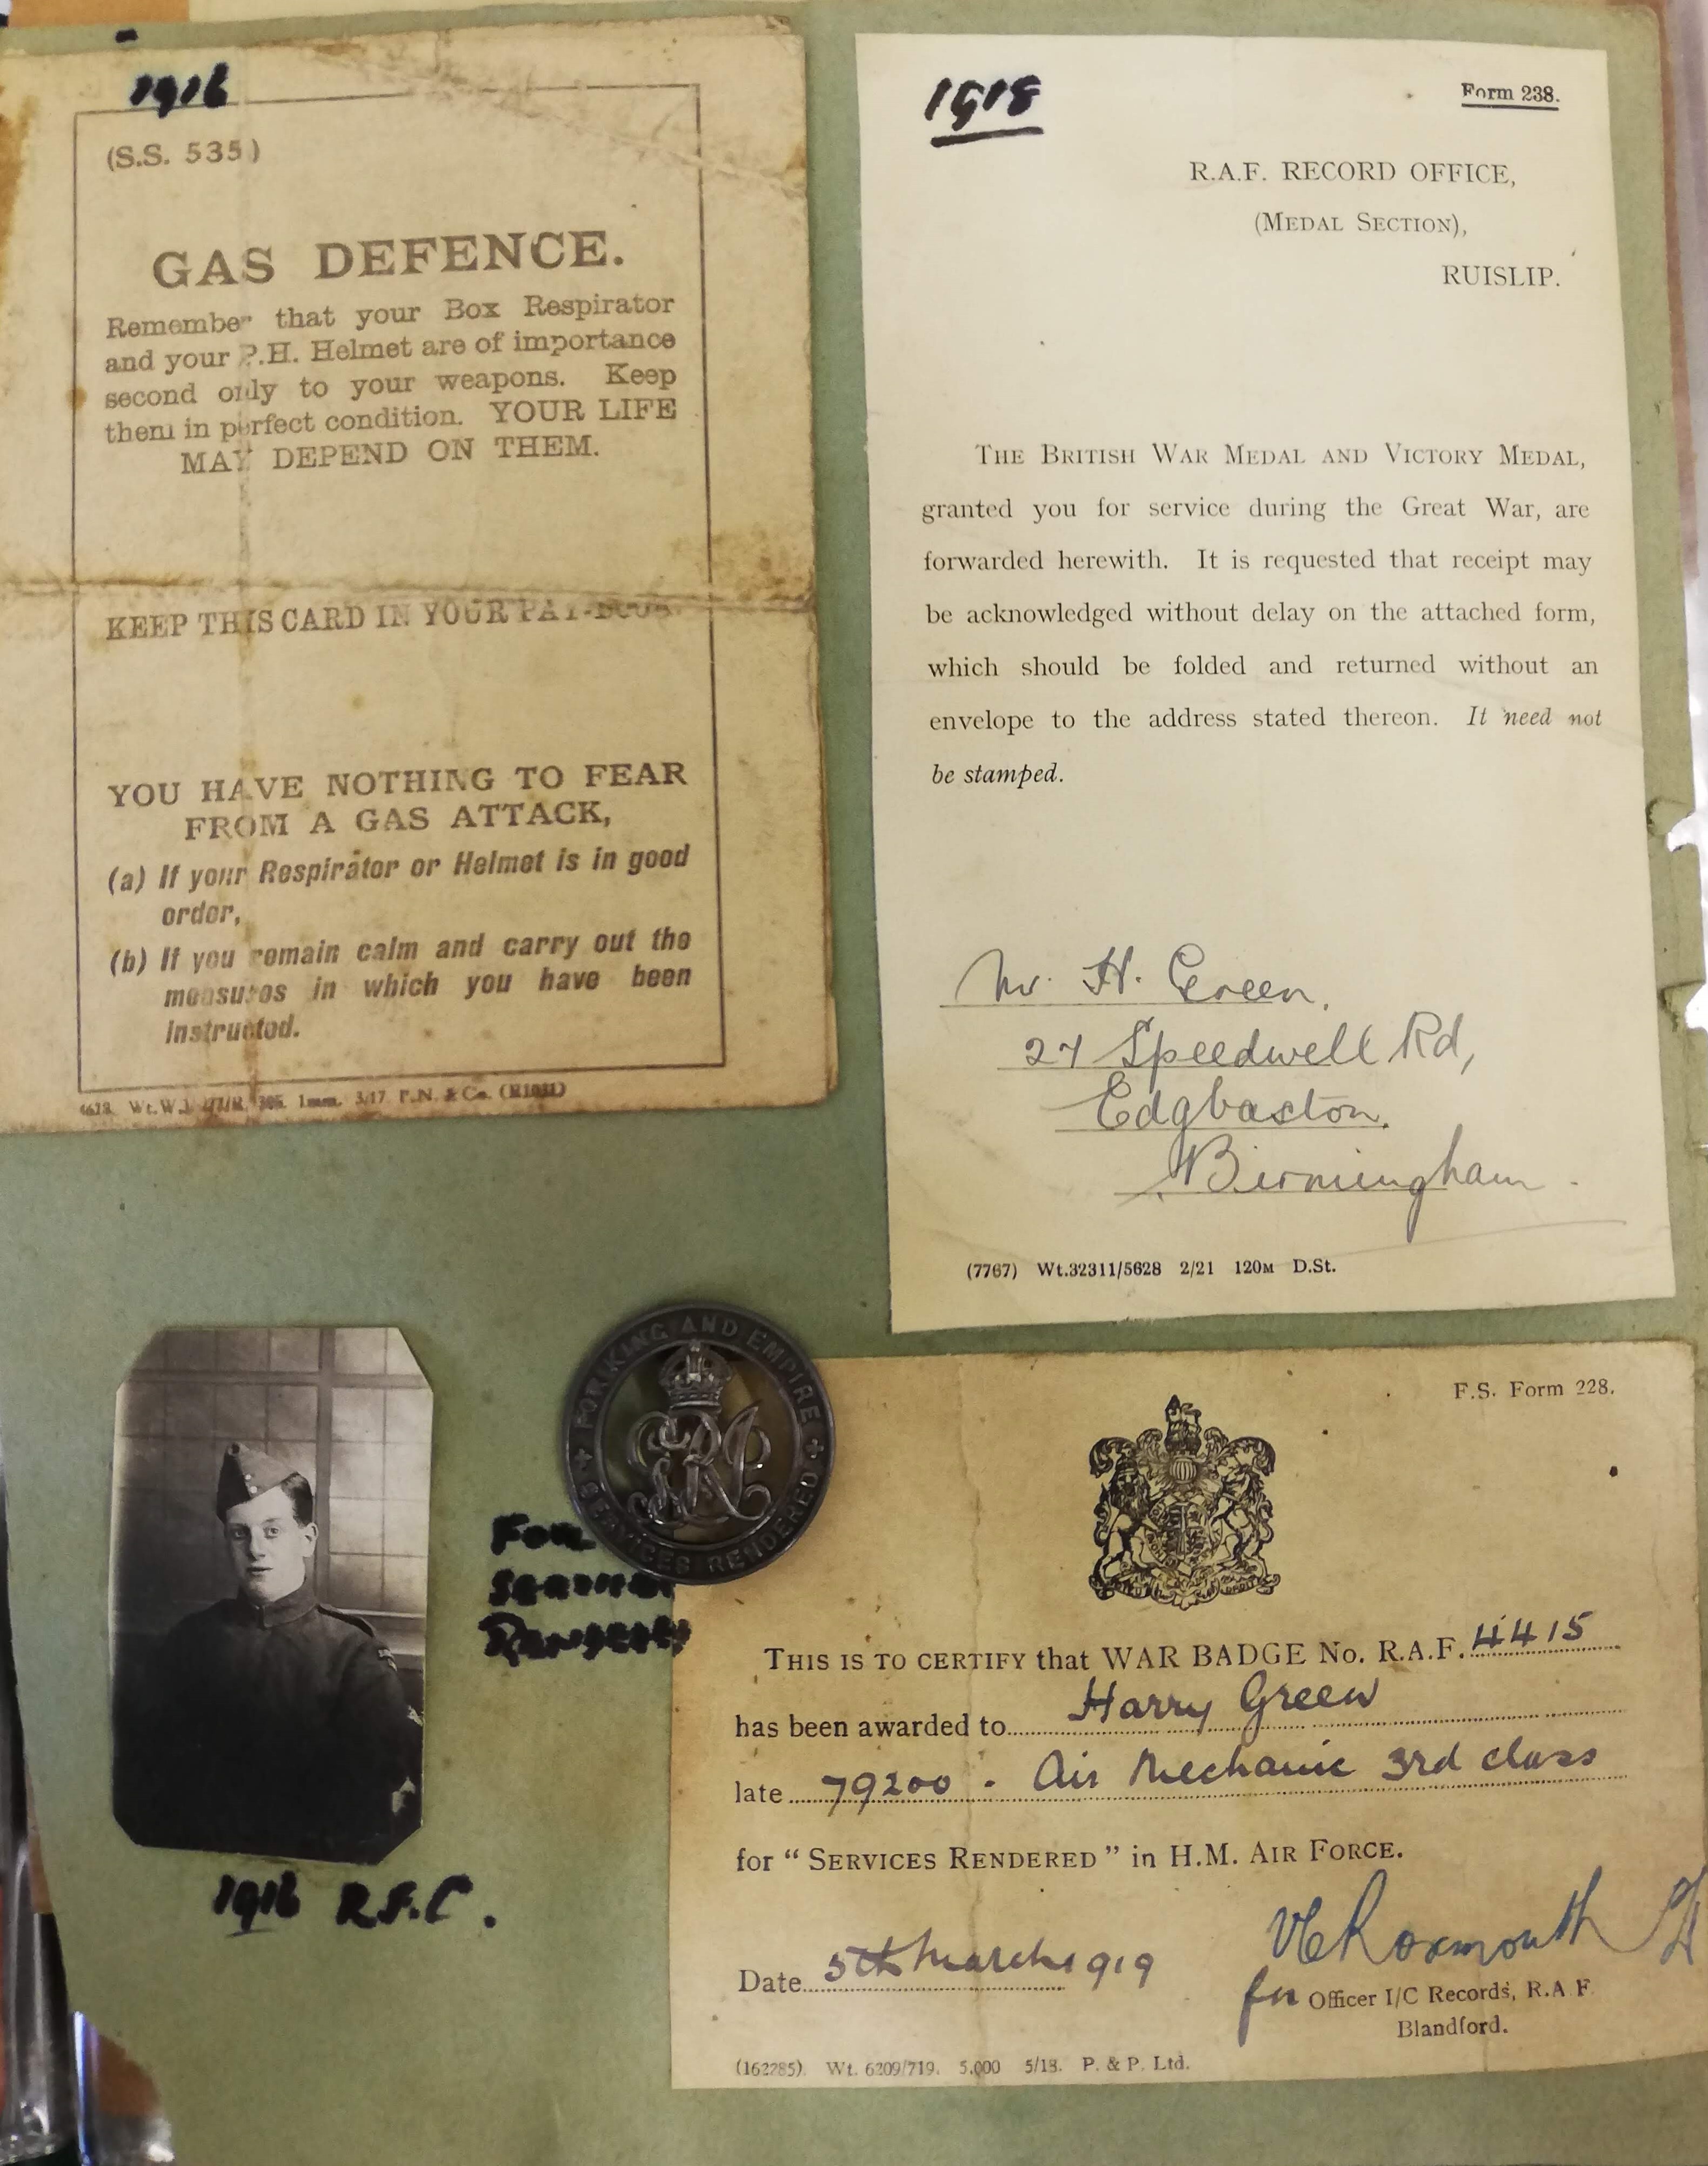 1916
(S.S. 535)
GAS DEFENCE.
Remember that your Box Respirator
and your P.H. Helmet are of importance
second only to your weapons. Keep
them in perfect condition. YOUR LIFE
MAY DEPEND ON THEM.
KEEP THIS CARD IN YOUR PAY-BOOK.
YOU HAVE NOTHING TO FEAR
FROM A GAS ATTACK,
(a) If your Respirator or Helmet is in good
order,
(b) If you remain calm and carry out the
measures in which you have been
instructed.
4628. 1mm. 3/17 P.N. & Co.
1918
Form 238.
R.A.F. RECORD OFFICE,
(MEDAL SECTION),
RUISLIP.
THE BRITISH WAR MEDAL AND VICTORY MEDAL,
granted you for service during the Great War, are
forwarded herewith. It is requested that receipt may
be acknowledged without delay on the attached form,
which should be folded and returned without an
envelope to the address stated thereon. It need not
be stamped.
Mr. H. Green,
27 Speedwell Rd,
Edgbaston,
Birmingham.
(7767) Wt.32311/5628 2/21 120M D.St.
1916 R.F.C.
FOR KING AND EMPIRE
SERVICES RENDERED
For
F.S. Form 228.
THIS IS TO CERTIFY that WAR BADGE No. R.A.F. 4415
has been awarded to Harry Green
late 79200 . Air Mechanic 3rd class
for "SERVICES RENDERED" in H.M. AIR FORCE.
Date 5th March 1919
for Officer I/C Records, R.A F
Blandford.
(162285). Wt. 6209/719. 5,000 5/18. P. & P. Ltd.